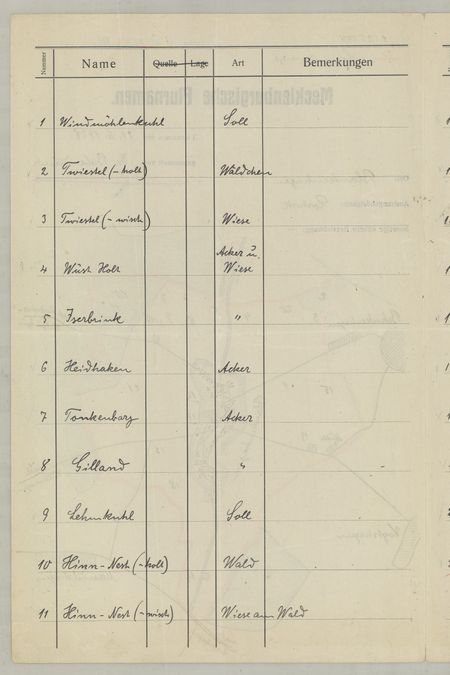 Nummer Name Quelle Lage Art Bemerkungen
1 Windmöhlenkuhl Soll
2 Twiestel (-holt) Wäldchen
3 Twiestel (-wisch) Wiese
4 Wüst Holt Acker u.
Wiese
5 Iserbrink "
6 Heidhaken Acker
7 Tonkenbarg Acker
8 Gilland "
9 Lehmkuhl Soll
10 Hinn-Nest (-holt) Wald
11 Hinn-Nest (-wisch) Wiese am Wald
Mecklenburgische Flurnamen.